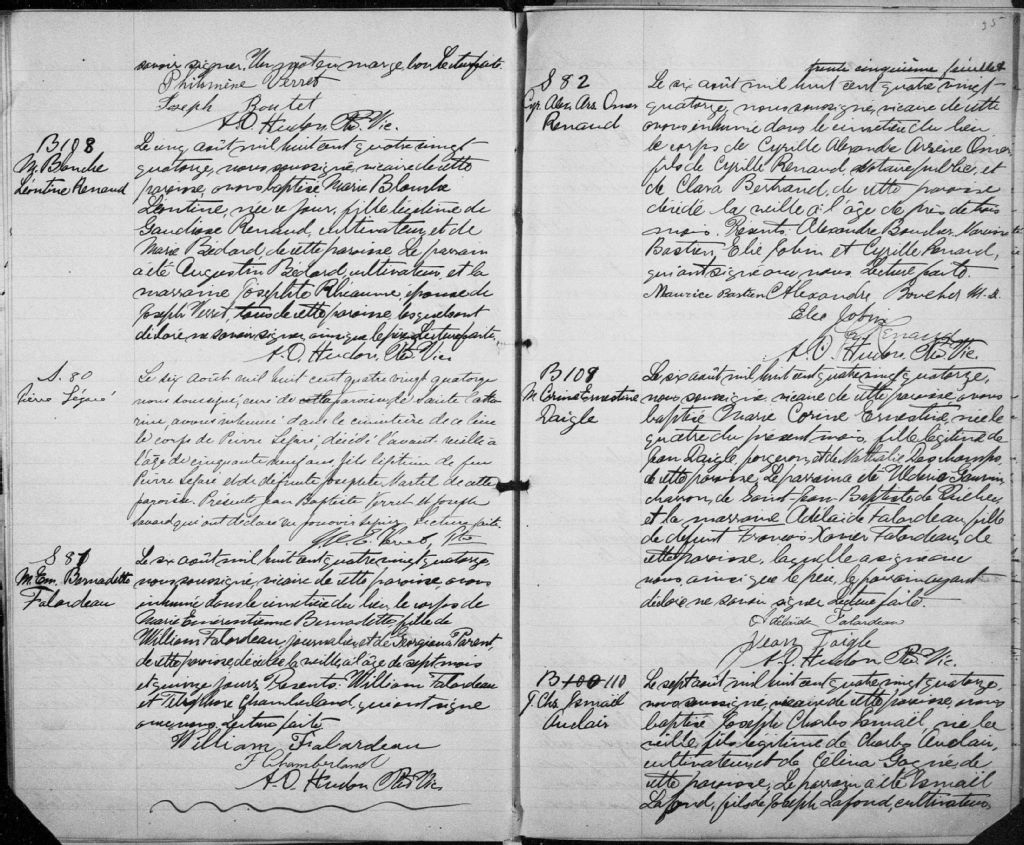 savoir signer. Un mot en marge bon. Lecture faite.
Philomène Verret
Joseph Boutet
A. O. Hudon, Ptre Vic.
B 108
M. Blanche
Léontine Renaud
Le cinq août mil huit cent quatre vingt
quatorze, nous, soussigné, vicaire de cette
paroisse, avons baptisé Marie Blanche
Léontine, née ce jour, fille légitime de
Gaudiose Renaud, cultivateur, et de
Marie Bédard de cette paroisse. Le parrain
a été Augustin Bédard, cultivateur, et la
marraine Josephte Rhéaume, épouse de
Joseph Verret, tous de cette paroisse, lesquels ont
déclaré ne savoir signer, ainsi que le père. Lecture faite.
A. O. Hudon, Ptre Vic.
S. 80
Pierre Légaré
Le six août mil huit cent quatre vingt quatorze
nous soussigné, curé de cette paroisse de Sainte Cathe
rine, avons inhumé dans le cimetière de ce lieu
le corps de Pierre Légaré, décédé l'avant-veille à
l'âge de cinquante neuf ans, fils légitime de feu
Pierre Légaré et de défunte Josephte Martel de cette
paroisse. Présents Jean Baptiste Verret et Joseph
Savard qui ont déclaré ne pouvoir signer. Lecture faite.
Ptre
S 81
M. Em. Bernadette
Falardeau
Le six août mil huit cent quatre vingt quatorze,
nous, soussigné, vicaire de cette paroisse, avons
inhumé dans le cimetière du lieu, le corps de
Marie Emérentienne Bernadette, fille de
William Falardeau, journalier, et de Georgiana Parent,
de cette paroisse, décédée la veille, à l'âge de sept mois
et quinze jours. Présents: William Falardeau
et Télesphore Chamberland, qui ont signé
avec nous. Lecture faite.
William Falardeau
T. Chamberland
A. O. Hudon Ptre Vic.
35
trente cinquième feuillet
S 82
Cyr. Alex. Ars. Omer
Renaud
Le six août mil huit cent quatre vingt-
quatorze, nous, soussigné, vicaire de cette
avons inhumé dans le cimetière du lieu
le corps de Cyrille Alexandre Arsène Omer
fils de Cyrille Renaud, notaire public, et
de Clara Bertrand, de cette paroisse
décédé la veille à l'âge de près de trois
mois. Présents: Alexandre Boucher, Maurice
Bastien, Elie Jobin et Cyrille Renaud,
qui ont signé avec nous. Lecture faite.
Maurice Bastien C. Alexandre Boucher M. D.
Elie Jobin
Cy. Renaud
A. O. Hudon, Ptre Vic.
B 109
M. Corine Ernestine
Daigle
Le six août mil huit cent quatre vingt quatorze,
nous, soussigné, vicaire de cette paroisse, avons
baptisé Marie Corine Ernestine, née le
quatre du présent mois, fille légitime de
Jean Daigle, forgeron, et de Nathalie Deschamps,
de cette paroisse. Le parrain a été Ulderic
charron, de Saint-Jean-Baptiste de Québec,
et la marraine Adélaïde Falardeau, fille
de défunt François-Xavier Falardeau, de
cette paroisse, laquelle a signé avec
nous, ainsi que le père, le parrain ayant
déclaré ne savoir signer. Lecture faite.
Adélaide Falardeau
Jean Daigle
A. O. Hudon Ptre Vic.
B 100 110
J. Chs. Ismaël
Auclair
Le sept août mil huit cent quatre vingt quatorze,
nous, soussigné, vicaire de cette paroisse, avons
baptisé Joseph Charles Ismaël, né la
veille, fils légitime de Charles Auclair,
cultivateur, et de Célina Gagné, de
cette paroisse. Le parrain a été Ismaël
Lafond, fils de Joseph Lafond, cultivateur,